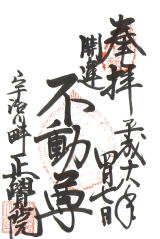 奉拝
平成十八年
四月七日
開運
不動尊
宇治川畔
正覺院